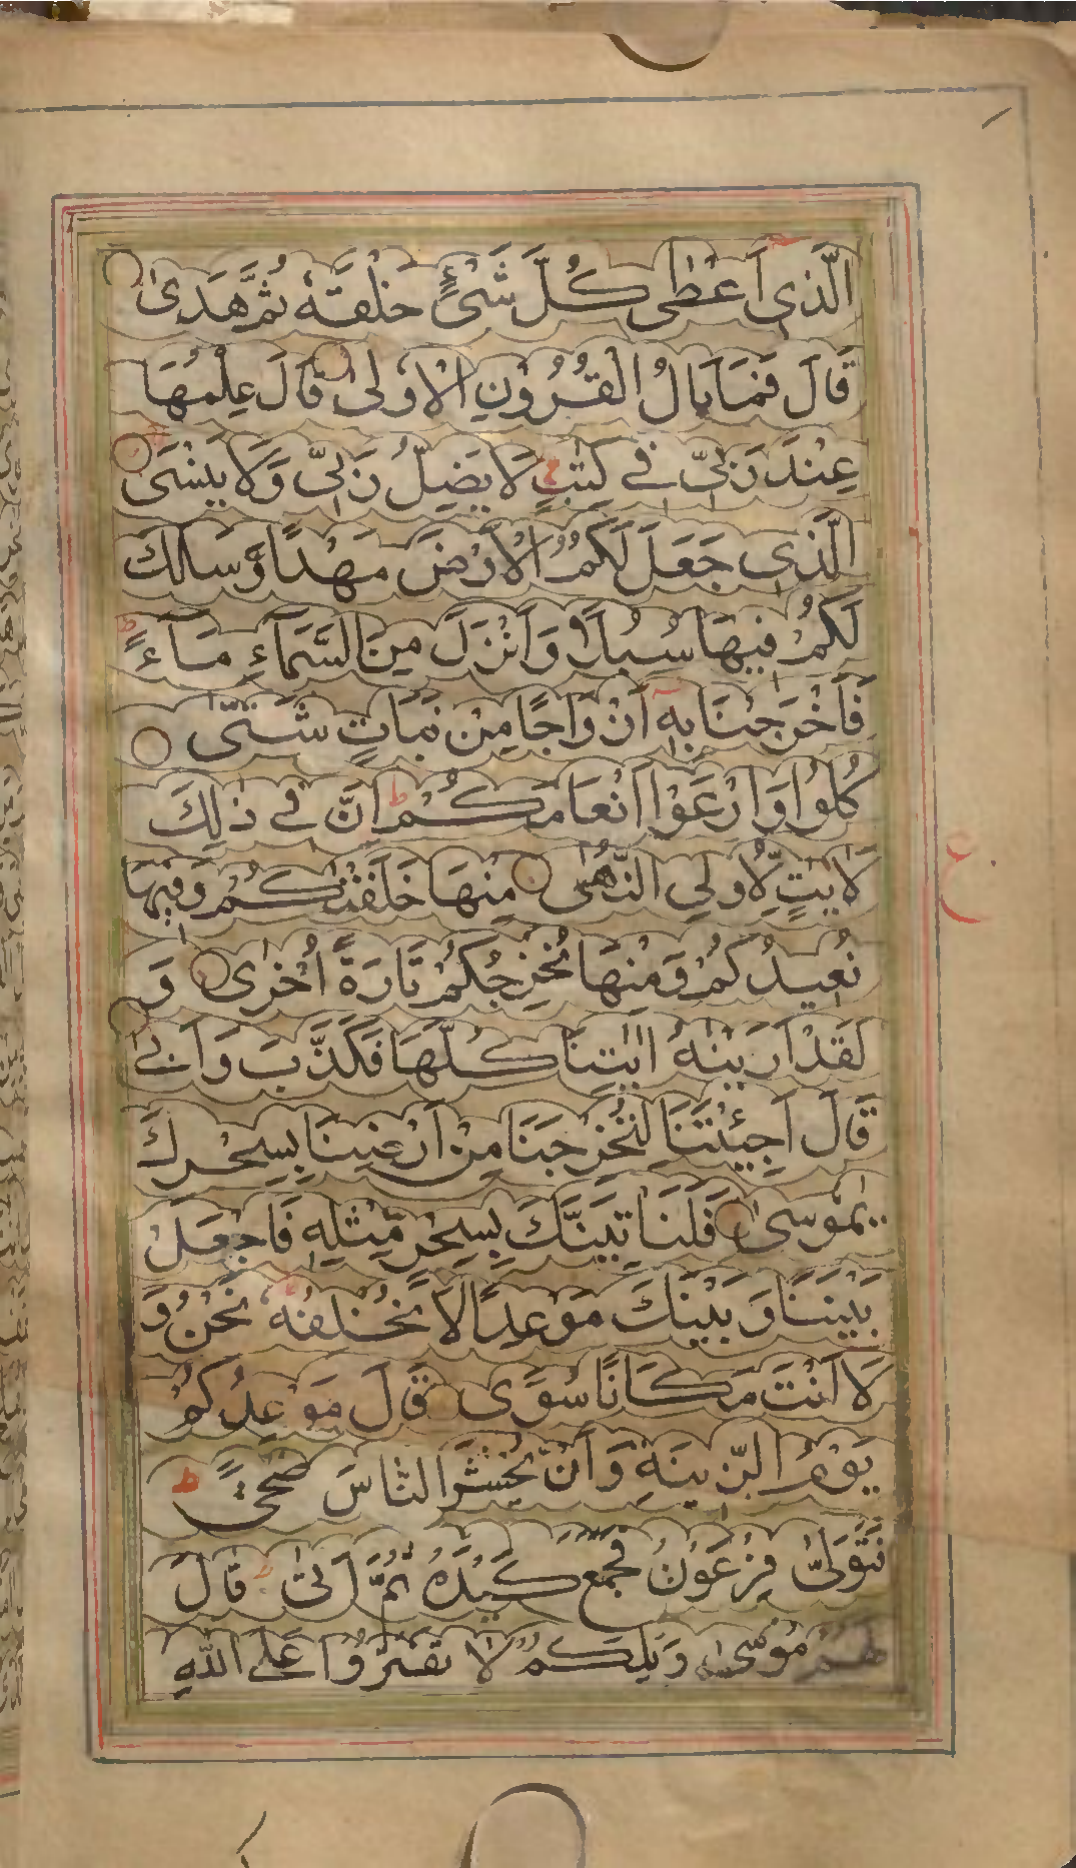 الَّذِىْ اَعْطٰى كُلَّ شَىْءٍ خَلْقَهٗ ثُمَّ هَدٰى
قَالَ فَمَا بَالُ الْقُرُوْنِ الْاُوْلٰى قَالَ عِلْمُهَا
عِنْدَ رَبِّىْ فِىْ كِتٰبٍ ج لَا يَضِلُّ رَبِّىْ وَلَا يَنْسَى
الَّذِىْ جَعَلَ لَكُمُ الْاَرْضَ مَهْدًا وَّسَلَكَ
لَكُمْ فِيْهَا سُبُلًا وَّاَنْزَلَ مِنَ السَّمَآءِ مَآءً ط
فَاَخْرَجْنَا بِهٖٓ اَزْوَاجًا مِنْ نَبَاتٍ شَتّٰى
كُلُوْا وَارْعَوْا اَنْعَامَكُمْ ط اِنَّ فِىْ ذٰلِكَ
لَاٰيٰتٍ لِّاُولِى النُّهٰى مِنْهَا خَلَقْنٰكُمْ وَفِيْهَا
نُعِيْدُكُمْ وَمِنْهَا نُخْرِجُكُمْ تَارَةً اُخْرٰى وَ
لَقَدْ اَرَيْنٰهُ اٰيٰتِنَا كُلَّهَا فَكَذَّبَ وَاَبٰى
قَالَ اَجِئْتَنَا لِتُخْرِجَنَا مِنْ اَرْضِنَا بِسِحْرِكَ
يٰمُوْسٰى فَلَنَاْتِيَنَّكَ بِسِحْرٍ مِّثْلِهٖ فَاجْعَلْ
بَيْنَنَا وَبَيْنَكَ مَوْعِدًا لَّا نُخْلِفُهٗ نَحْنُ وَ
لَا اَنْتَ مَكَانًا سُوًى قَالَ مَوْعِدُكُمْ
يَوْمُ الزِّيْنَةِ وَاَنْ يُّحْشَرَ النَّاسُ ضُحًى ط
فَتَوَلّٰى فِرْعَوْنُ فَجَمَعَ كَيْدَهٗ ثُمَّ اَتٰى قَالَ
لَهُمْ مُوْسٰى وَيْلَكُمْ لَا تَفْتَرُوْا عَلَى اللّٰهِ
ع